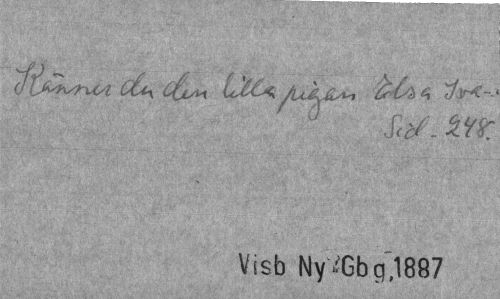 Känner du den lilla pigan Elsa Sva-
Sid. 248.
Visb Ny Gbg, 1887